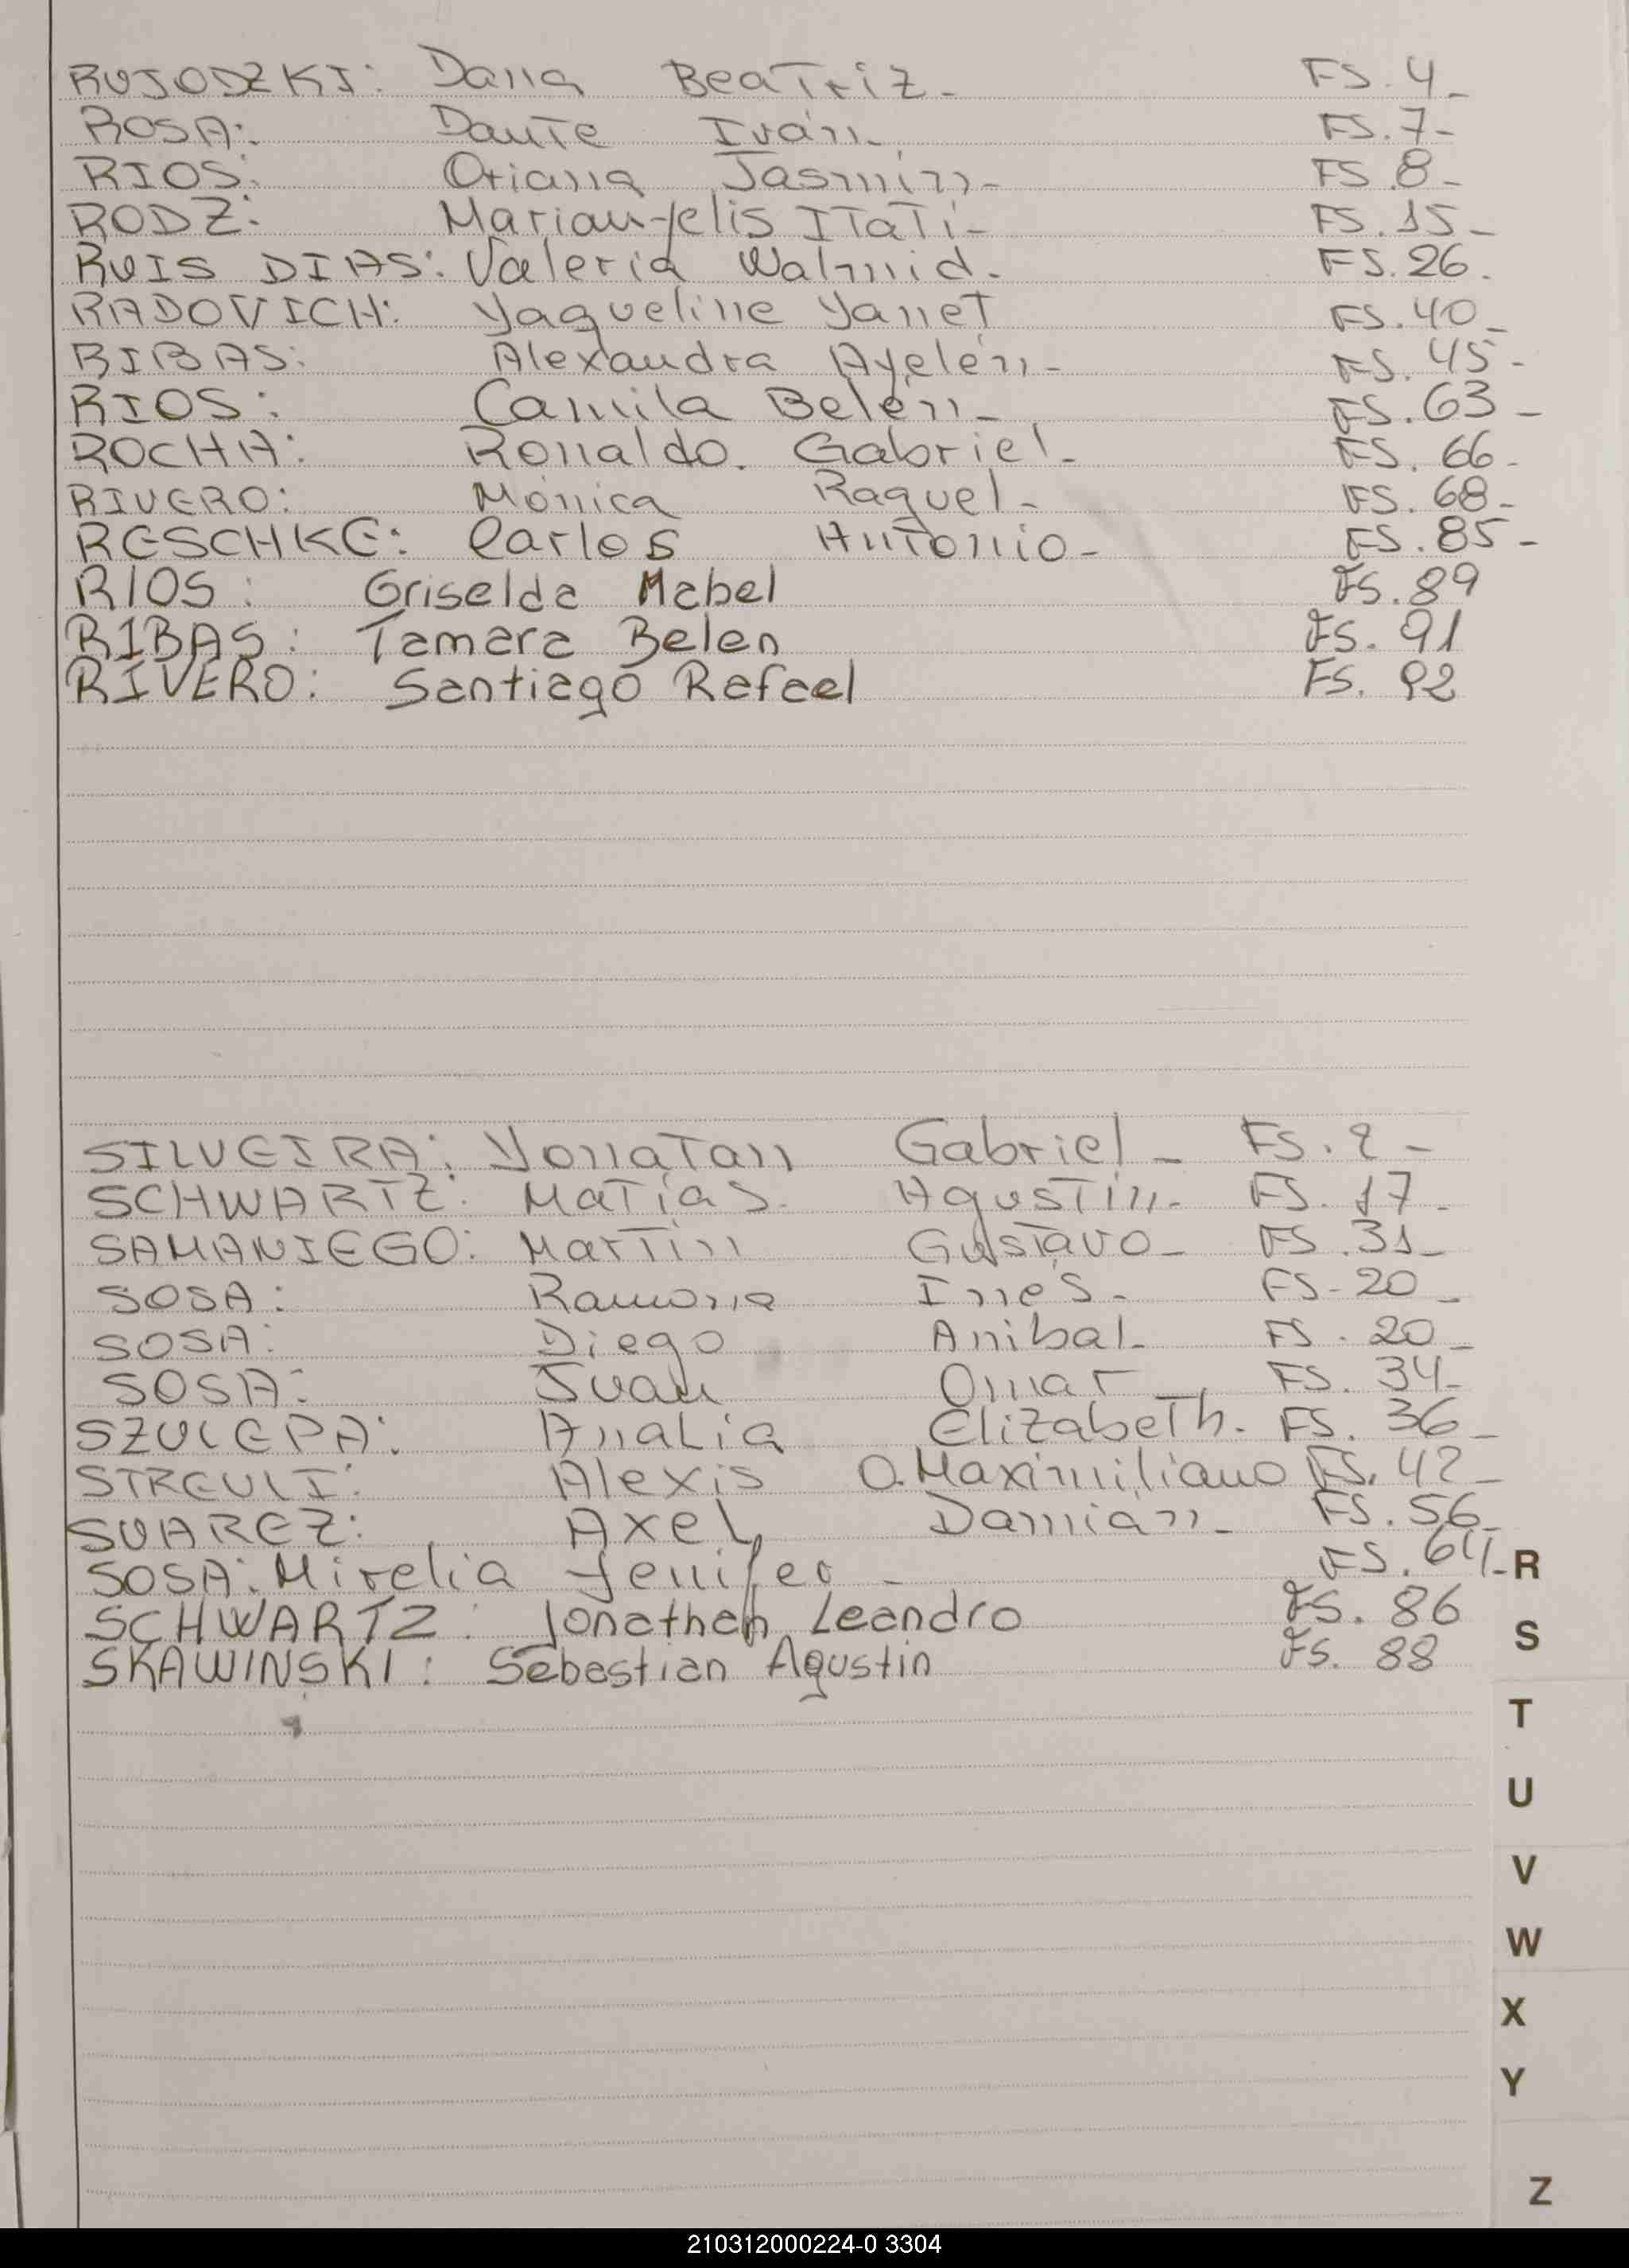 RUJODZKI: Dana Beatriz- FS. 4-
ROSA: Dante Iván- FS. 7-
RIOS: Oriana Jasmín- FS. 8-
RODZ: Mariangelis Itatí- FS. 15-
RUIS DIAS: Valeria FS. 26.
RADOVICH: Yaqueline Yanet FS. 40-
RIBAS: Alexandra Ayelén- FS. 45-
RIOS: Camila Belén- FS. 63-
ROCHA: Ronaldo. Gabriel- FS. 66-
RIVERO: Mónica Raquel- FS. 68-
RESCHKE: Carlos Antonio- FS. 85-
RIOS: Griselda Mabel FS. 89
RIBAS: Tamara Belen FS. 91
RIVERO: Santiago Rafael FS. 92
SILVEIRA: Yonatan Gabriel- FS. 2-
SCHWARTZ: Matías. Agustín- FS. 17-
SAMANIEGO: Martín Gustavo- FS. 31-
SOSA: Ramona Inés- FS-20-
SOSA: Diego Anibal- FS. 20-
SOSA: Juan Omar FS. 34-
SZULEPA: Analia Elizabeth. FS. 36-
STREULI: Alexis O.Maximiliano FS. 42-
SUAREZ: Axel Damián- FS. 56-
SOSA: Mirelia Jenifer- FS. 64-
R
SCHWARTZ: Jonathan Leandro FS. 86
S
SKAWINSKI: Sebastian Agustin FS. 88
T
U
V
W
X
Y
Z
210312000224-0 3304